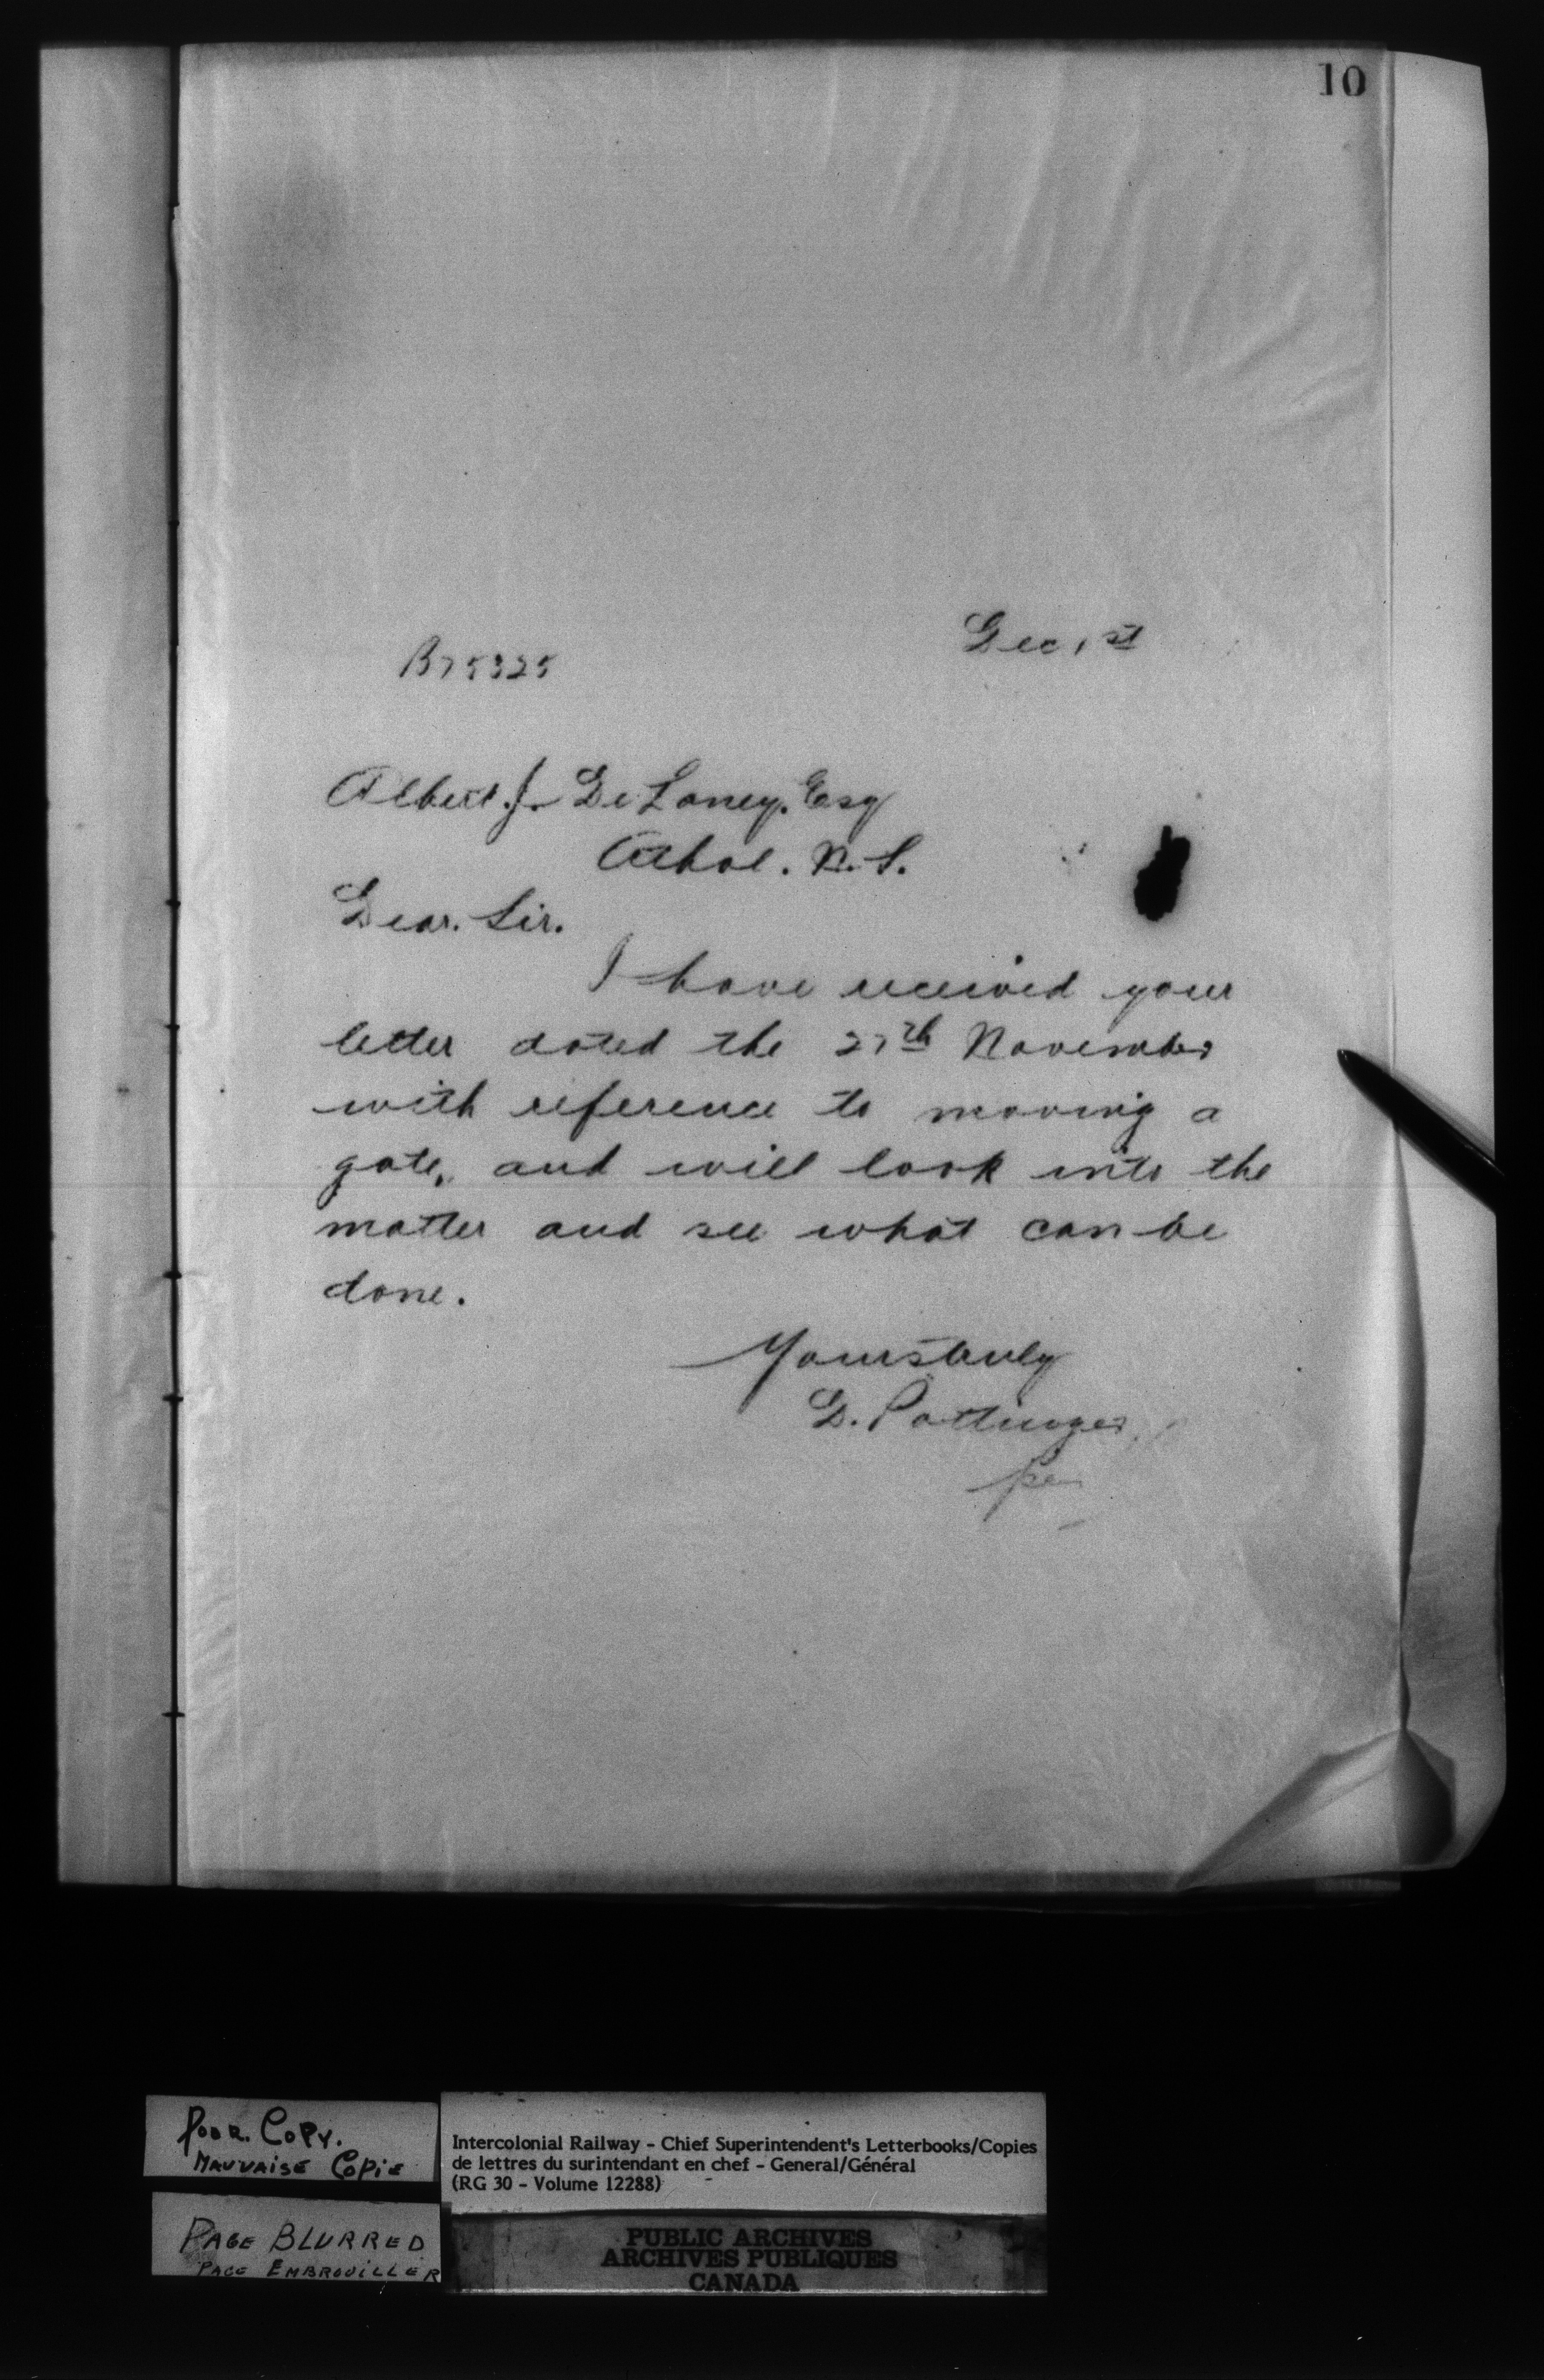 10
Dec 1st
B75325
Albert J. DeLaney. Esq
Athol. N.S.
Dear. Sir.
I have received your
letter dated the 27th November
with reference to moving a
gate, and will look into the
matter and see what can be
done.
Yours truly
D. Pottinger
per
Poor. Copy.
Mauvaise Copie
Intercolonial Railway - Chief Superintendent's Letterbooks/Copies
de lettres du surintendant en chef - General/Général
(RG 30 - Volume 12288)
Page Blurred
Page Embrouiller
PUBLIC ARCHIVES
ARCHIVES PUBLIQUES
CANADA